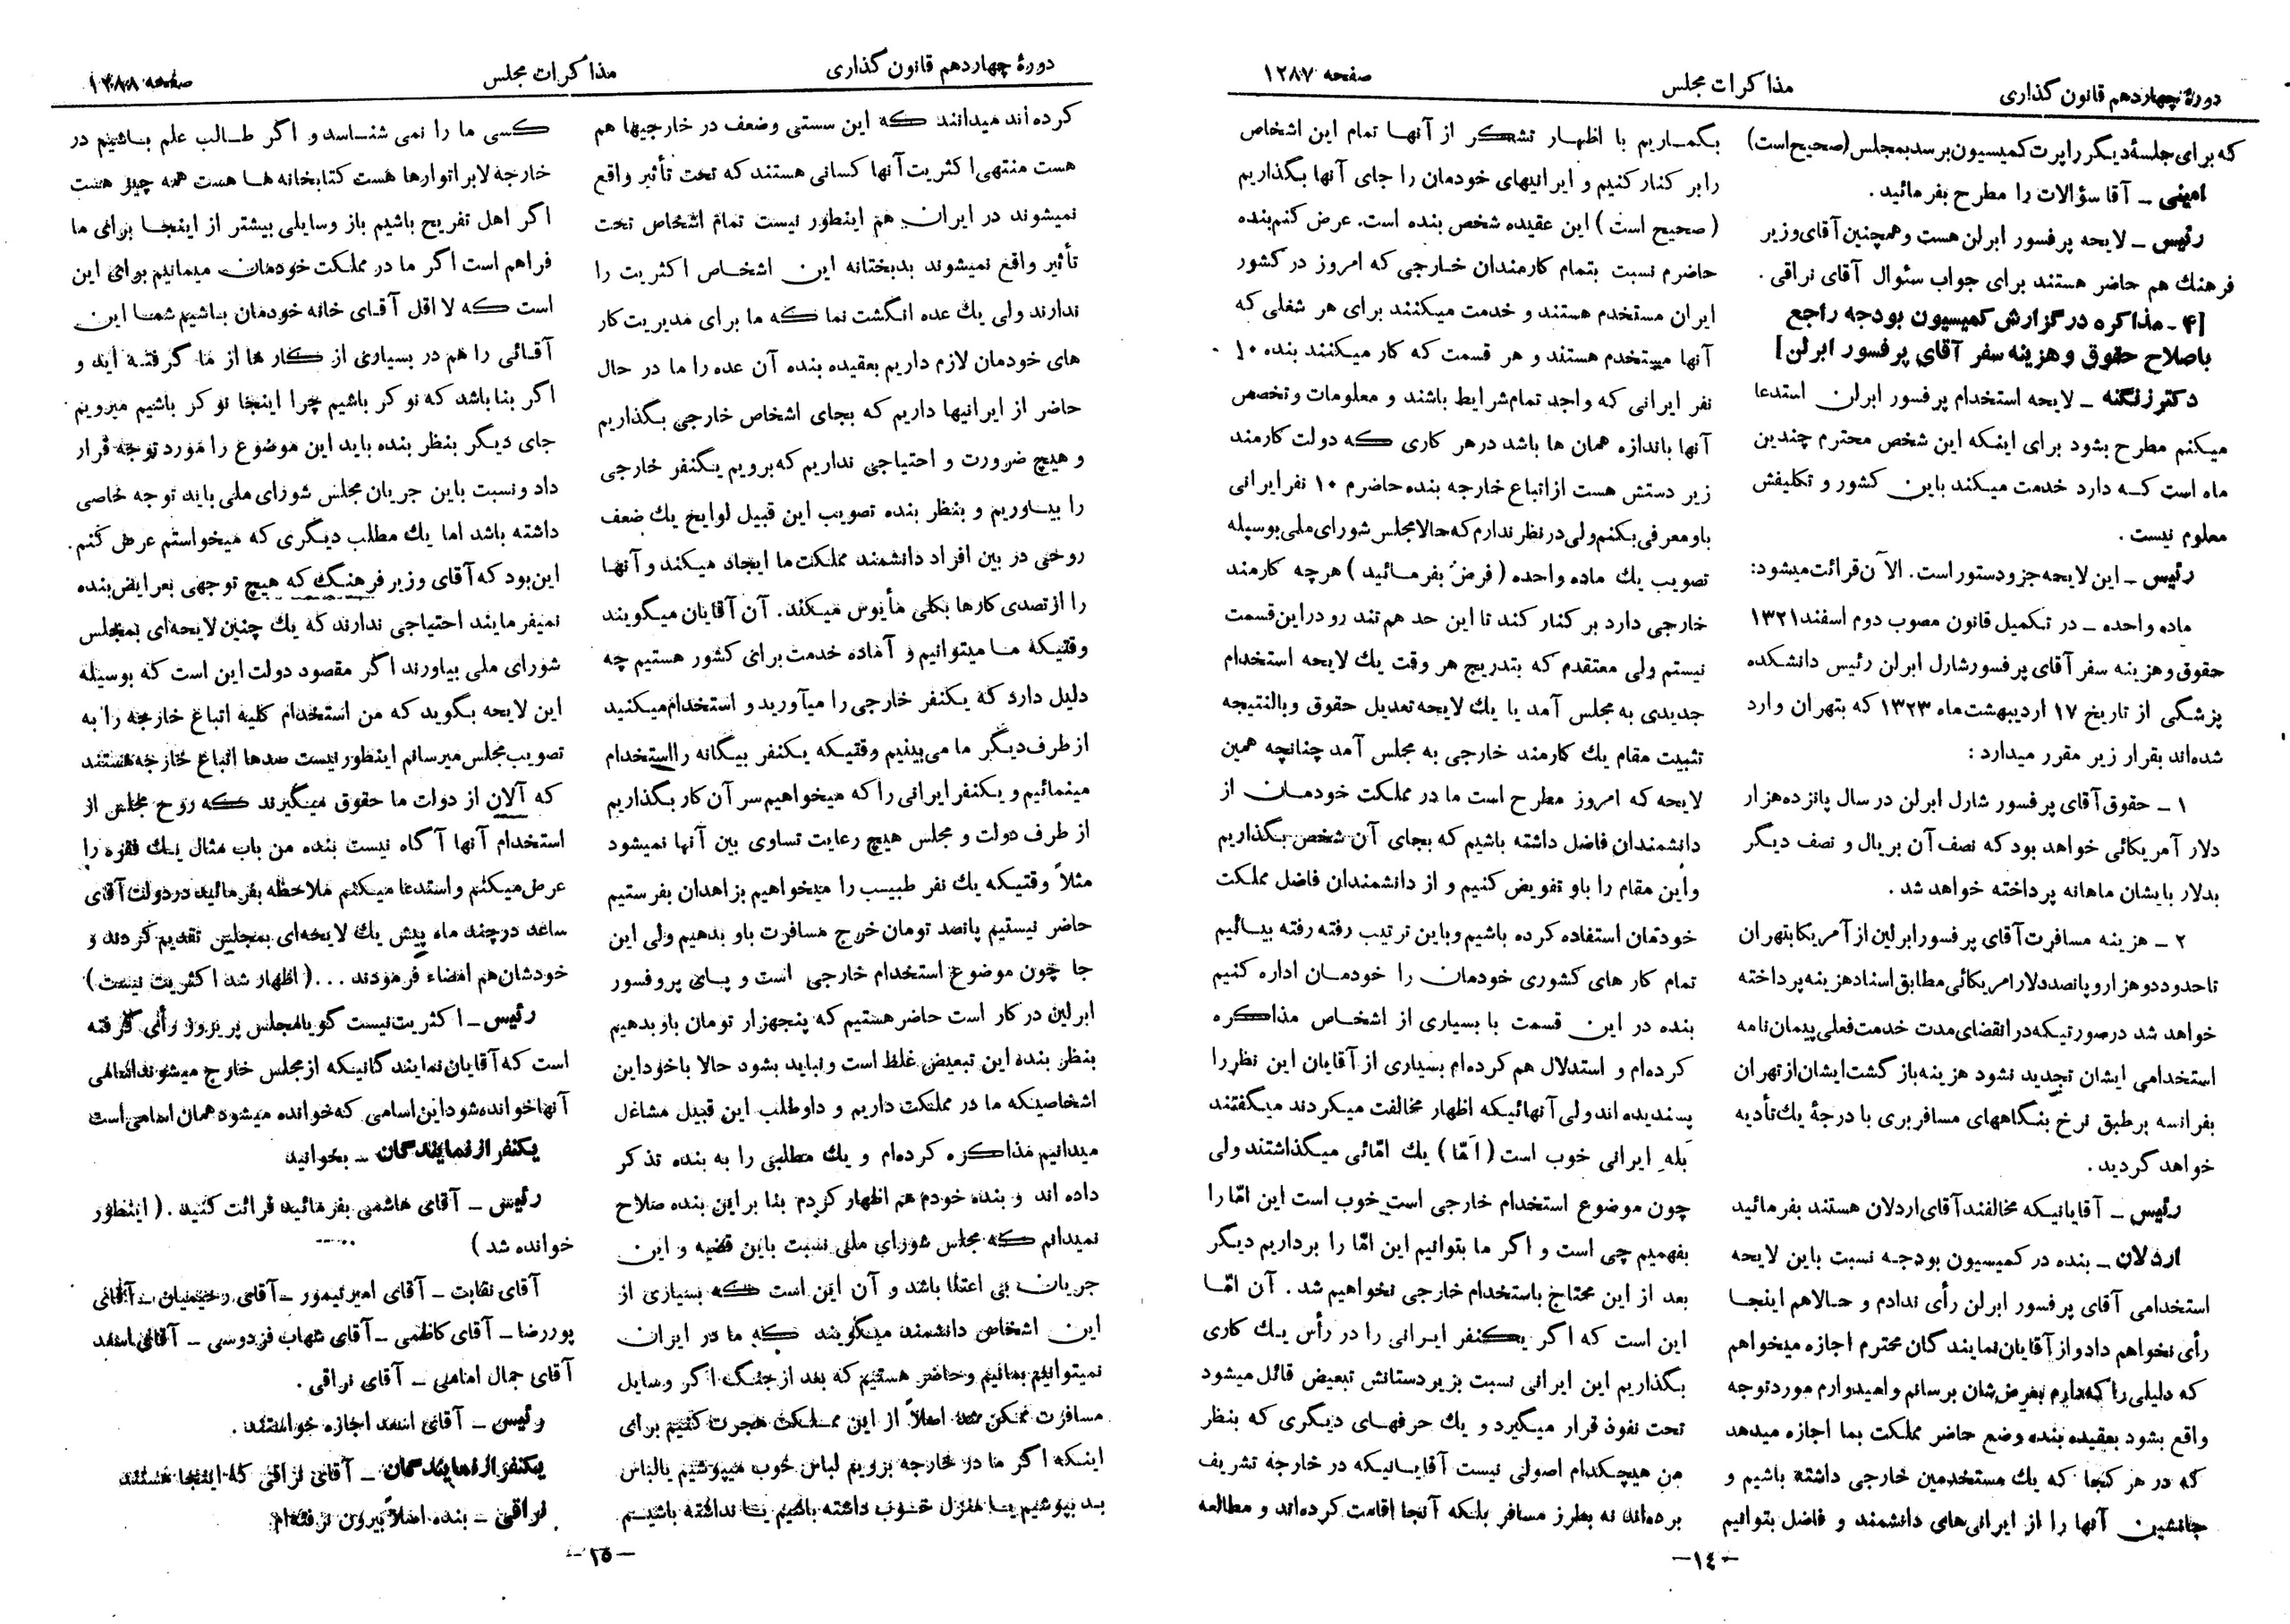 دورهٔ چهاردهم قانون گذاری
مذاکرات مجلس
صفحه ۱۲۸۷
که برای جلسهٔ دیگر راپرت کمیسیون برسد بمجلس (صحیح است)
امینی ــ آقا سؤالات را مطرح بفرمائید .
رئیس ــ لایحه پرفسور ابرلن هست وهمچنین آقای وزیر
فرهنك هم حاضر هستند برای جواب سئوال آقای نراقی .
[۴ ــ مذاکره در گزارش کمیسیون بودجه راجع
باصلاح حقوق و هزینه سفر آقای پرفسور ابرلن]
دکتر زنگنه ــ لایحه استخدام پرفسور ابرلن استدعا
میکنم مطرح بشود برای اینکه این شخص محترم چندین
ماه است که دارد خدمت میکند باین کشور و تکلیفش
معلوم نیست .
رئیس ــ این لایحه جزو دستور است. الآن قرائت میشود:
ماده واحده ــ در تکمیل قانون مصوب دوم اسفند ۱۳۲۱
حقوق و هزینه سفر آقای پرفسور شارل ابرلن رئیس دانشکده
پزشکی از تاریخ ۱۷ اردیبهشت ماه ۱۳۲۳ که بتهران وارد
شده‌اند بقرار زیر مقرر میدارد :
۱ ــ حقوق آقای پرفسور شارل ابرلن در سال پانزده هزار
دلار آمریکائی خواهد بود که نصف آن بریال و نصف دیگر
بدلار بایشان ماهانه پرداخته خواهد شد .
۲ ــ هزینه مسافرت آقای پرفسور ابرلین از آمریکا بتهران
تا حدود دو هزار و پانصد دلار امریکائی مطابق اسناد هزینه پرداخته
خواهد شد درصورتیکه در انقضای مدت خدمت فعلی پیمان نامه
استخدامی ایشان تجدید نشود هزینه بازگشت ایشان از تهران
بفرانسه برطبق نرخ بنگاههای مسافربری با درجهٔ یك تأدیه
خواهد گردید .
رئیس ــ آقایانیکه مخالفند آقای اردلان هستند بفرمائید
اردلان ــ بنده در کمیسیون بودجه نسبت باین لایحه
استخدامی آقای پرفسور ابرلن رأی ندادم و حالاهم اینجا
رأی نخواهم داد و از آقایان نمایندگان محترم اجازه میخواهم
که دلیلی را که دارم بعرضشان برسانم و امیدوارم مورد توجه
واقع بشود بعقیده بنده وضع حاضر مملکت بما اجازه میدهد
که در هر کجا که یك مستخدمین خارجی داشته باشیم و
جانشین آنها را از ایرانی‌های دانشمند و فاضل بتوانیم
بگماریم با اظهار تشکر از آنها تمام این اشخاص
را بر کنار کنیم و ایرانیهای خودمان را جای آنها بگذاریم
(صحیح است) این عقیده شخص بنده است. عرض کنم بنده
حاضرم نسبت بتمام کارمندان خارجی که امروز در کشور
ایران مستخدم هستند و خدمت میکنند برای هر شغلی که
آنها مستخدم هستند و هر قسمت که کار میکنند بنده ۱۰
نفر ایرانی که واجد تمام شرایط باشند و معلومات و تخصص
آنها باندازه همان ها باشد درهر کاری که دولت کارمند
زیر دستش هست از اتباع خارجه بنده حاضرم ۱۰ نفر ایرانی
باو معرفی بکنم ولی در نظر ندارم که حالا مجلس شورای ملی بوسیله
تصویب یك ماده واحده (فرض بفرمائید) هرچه کارمند
خارجی دارد بر کنار کند تا این حد هم تند رو در این قسمت
نیستم ولی معتقدم که بتدریج هر وقت یك لایحه استخدام
جدیدی به مجلس آمد یا یك لایحه تعدیل حقوق و بالنتیجه
تثبیت مقام یك کارمند خارجی به مجلس آمد چنانچه همین
لایحه که امروز مطرح است ما در مملکت خودمان از
دانشمندان فاضل داشته باشیم که بجای آن شخص بگذاریم
و این مقام را باو تفویض کنیم و از دانشمندان فاضل مملکت
خودمان استفاده کرده باشیم وباین ترتیب رفته رفته بیائیم
تمام کار های کشوری خودمان را خودمان اداره کنیم
بنده در این قسمت با بسیاری از اشخاص مذاکره
کرده‌ام و استدلال هم کرده‌ام بسیاری از آقایان این نظر را
پسندیده اند ولی آنهائیکه اظهار مخالفت میکردند میگفتند
بَله ایرانی خوب است (امّا) یك امّائی میگذاشتند ولی
چون موضوع استخدام خارجی است خوب است این امّا را
بفهمیم چی است و اگر ما بتوانیم این امّا را برداریم دیگر
بعد از این محتاج باستخدام خارجی نخواهیم شد . آن امّا
این است که اگر یکنفر ایرانی را در رأس یك کاری
بگذاریم این ایرانی نسبت بزیر دستانش تبعیض قائل میشود
تحت نفوذ قرار میگیرد و یك حرفهای دیگری که بنظر
من هیچکدام اصولی نیست آقایانیکه در خارجه تشریف
برده‌اند نه بطرز مسافر بلکه آنجا اقامت کرده‌اند و مطالعه
ــ۱٤ــ
دورهٔ چهاردهم قانون گذاری
مذاکرات مجلس
صفحه ۱۲۸۸
کرده‌اند میدانند که این سستی وضعف در خارجیها هم
هست منتهی اکثریت آنها کسانی هستند که تحت تأثیر واقع
نمیشوند در ایران هم اینطور نیست تمام اشخاص تحت
تأثیر واقع نمیشوند بدبختانه این اشخاص اکثریت را
ندارند ولی یك عده انگشت نما که ما برای مدیریت کار
های خودمان لازم داریم بعقیده بنده آن عده را ما در حال
حاضر از ایرانیها داریم که بجای اشخاص خارجی بگذاریم
و هیچ ضرورت و احتیاجی نداریم که برویم یکنفر خارجی
را بیاوریم و بنظر بنده تصویب این قبیل لوایح یك ضعف
روحی در بین افراد دانشمند مملکت ما ایجاد میکند و آنها
را از تصدی کارها بکلی مأیوس میکند. آن آقایان میگویند
وقتیکه ما میتوانیم و آماده خدمت برای کشور هستیم چه
دلیل دارد که یکنفر خارجی را میآورید و استخدام میکنید
از طرف دیگر ما می بینیم وقتیکه یکنفر بیگانه را استخدام
مینمائیم و یکنفر ایرانی را که میخواهیم سر آن کار بگذاریم
از طرف دولت و مجلس هیچ رعایت تساوی بین آنها نمیشود
مثلاً وقتیکه یك نفر طبیب را میخواهیم بزاهدان بفرستیم
حاضر نیستیم پانصد تومان خرج مسافرت باو بدهیم ولی این
جا چون موضوع استخدام خارجی است و پای پروفسور
ابرلین در کار است حاضر هستیم که پنجهزار تومان باو بدهیم
بنظر بنده این تبعیض غلط است و نباید بشود حالا با خود این
اشخاصیکه ما در مملکت داریم و داوطلب این قبیل مشاغل
میدانیم مذاکره کرده‌ام و یك مطلبی را به بنده تذکر
داده اند و بنده خودم هم اظهار کردم بنا بر این بنده صلاح
نمیدانم که مجلس شورای ملی نسبت باین قضیه و این
جریان بی اعتنا باشد و آن این است که بسیاری از
این اشخاص دانشمند میگویند که ما در ایران
نمیتوانیم بمانیم وحاضر هستیم که بعد از جنگ اگر وسایل
مسافرت ممکن شد اصلاً از این مملکت هجرت کنیم برای
اینکه اگر ما در خارجه برویم لباس خوب میپوشیم یا لباس
بد بپوشیم یا منزل خوب داشته باشیم یا نداشته باشیم
کسی ما را نمی شناسد و اگر طالب علم باشیم در
خارجه لابراتوارها هست کتابخانه ها هست همه چیز هست
اگر اهل تفریح باشیم باز وسایلی بیشتر از اینجا برای ما
فراهم است اگر ما در مملکت خودمان میمانیم برای این
است که لا اقل آقای خانه خودمان باشیم شما این
آقائی را هم در بسیاری از کار ها از ما گرفته اید و
اگر بنا باشد که نو کر باشیم چرا اینجا نو کر باشیم میرویم
جای دیگر بنظر بنده باید این موضوع را مورد توجه قرار
داد و نسبت باین جریان مجلس شورای ملی باید توجه خاصی
داشته باشد اما یك مطلب دیگری که میخواستم عرض کنم.
این بود که آقای وزیر فرهنگ که هیچ توجهی بعرایض بنده
نمیفرمایند احتیاجی ندارند که یك چنین لایحه‌ای بمجلس
شورای ملی بیاورند اگر مقصود دولت این است که بوسیله
این لایحه بگوید که من استخدام کلیه اتباع خارجه را به
تصویب مجلس میرسانم اینطور نیست صدها اتباع خارجه هستند
که آلان از دولت ما حقوق میگیرند که روح مجلس از
استخدام آنها آگاه نیست بنده من باب مثال یك فقره را
عرض میکنم و استدعا میکنم ملاحظه بفرمائید در دولت آقای
ساعد در چند ماه پیش یك لایحه‌ای بمجلس تقدیم کردند و
خودشان هم امضاء فرمودند ... (اظهار شد اکثریت نیست)
رئیس ــ اکثریت نیست گویا مجلس پریروز رأی گرفته
است که آقایان نمایندگانیکه از مجلس خارج میشوند اسامی
آنها خوانده شود این اسامی که خوانده میشود همان اسامی است
یکنفر از نمایندگان ــ بخوانید
رئیس ــ آقای هاشمی بفرمائید قرائت کنید . (اینطور
خوانده شد)
آقای نقابت ــ آقای امیر تیمور ــ آقای رحیمیان ــ آقای
پوررضا ــ آقای کاظمی ــ آقای شهاب فردوسی ــ آقای اسعد
آقای جمال امامی ــ آقای نراقی .
رئیس ــ آقای اسعد اجازه خواستند .
یکنفر از نمایندگان ــ آقای نراقی که اینجا هستند
نراقی ــ بنده اصلاً بیرون نرفته‌ام
ــ۱۵ــ